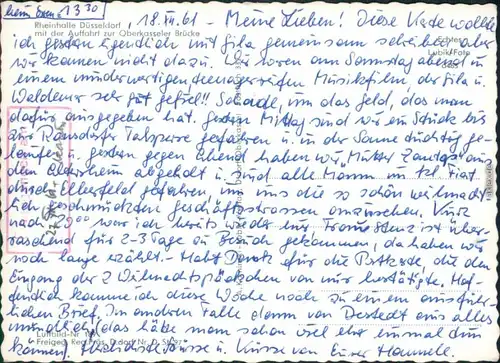 (beim Essen 13 30)
Rheinhalle Düsseldorf
mit der Auffahrt zur Oberkasseler Brücke
18.XII.61 - Meine Lieben! Diese Karte wollte
ich gestern eigentlich mit Gila gemeinsam schreiben aber
Echtes
Lubik-Foto
wir kamen nicht dazu. Wir waren am Sonnabend abend in
einem minderwertigen Musikfilm, der Gila u.
Waldemar sehr gut gefiel!! Schade, um das Geld, das man
dafür ausgegeben hat. Gestern Mittag sind wir ein Stück bis
zur Ronsdorfer Talsperre gefahren u. in der Sonne tüchtig ge-
laufen u. gestern gegen Abend haben wir Mutter aus
dem Altersheim abgeholt u. sind alle Mann im Fiat
durch Elberfeld gefahren, um uns die so schön weihnacht-
lich geschmückten Geschäftsstrassen anzusehen. Kurz
nach 23 00 war ich bereits wieder hier. Franz ist über-
raschend für 2-3 Tage zu Besuch gekommen, da haben wir
noch lange erzählt. - Habt Dank für die Postkarte die den
Eingang der 2 Weihnachtspäckchen von mir bestätigte. Hof-
fentlich komme ich diese Woche noch zu einem ausführ-
lichen Brief. Im andern Falle dann von Destedt aus alles
Luftbild-Nr.
mündlich (das hätte man schon viel eher einmal tun
Freigeg. Reg. Präs. D'dorf Nr.
können). Herzliche Grüsse u. Küsse von Eurer Hannele.